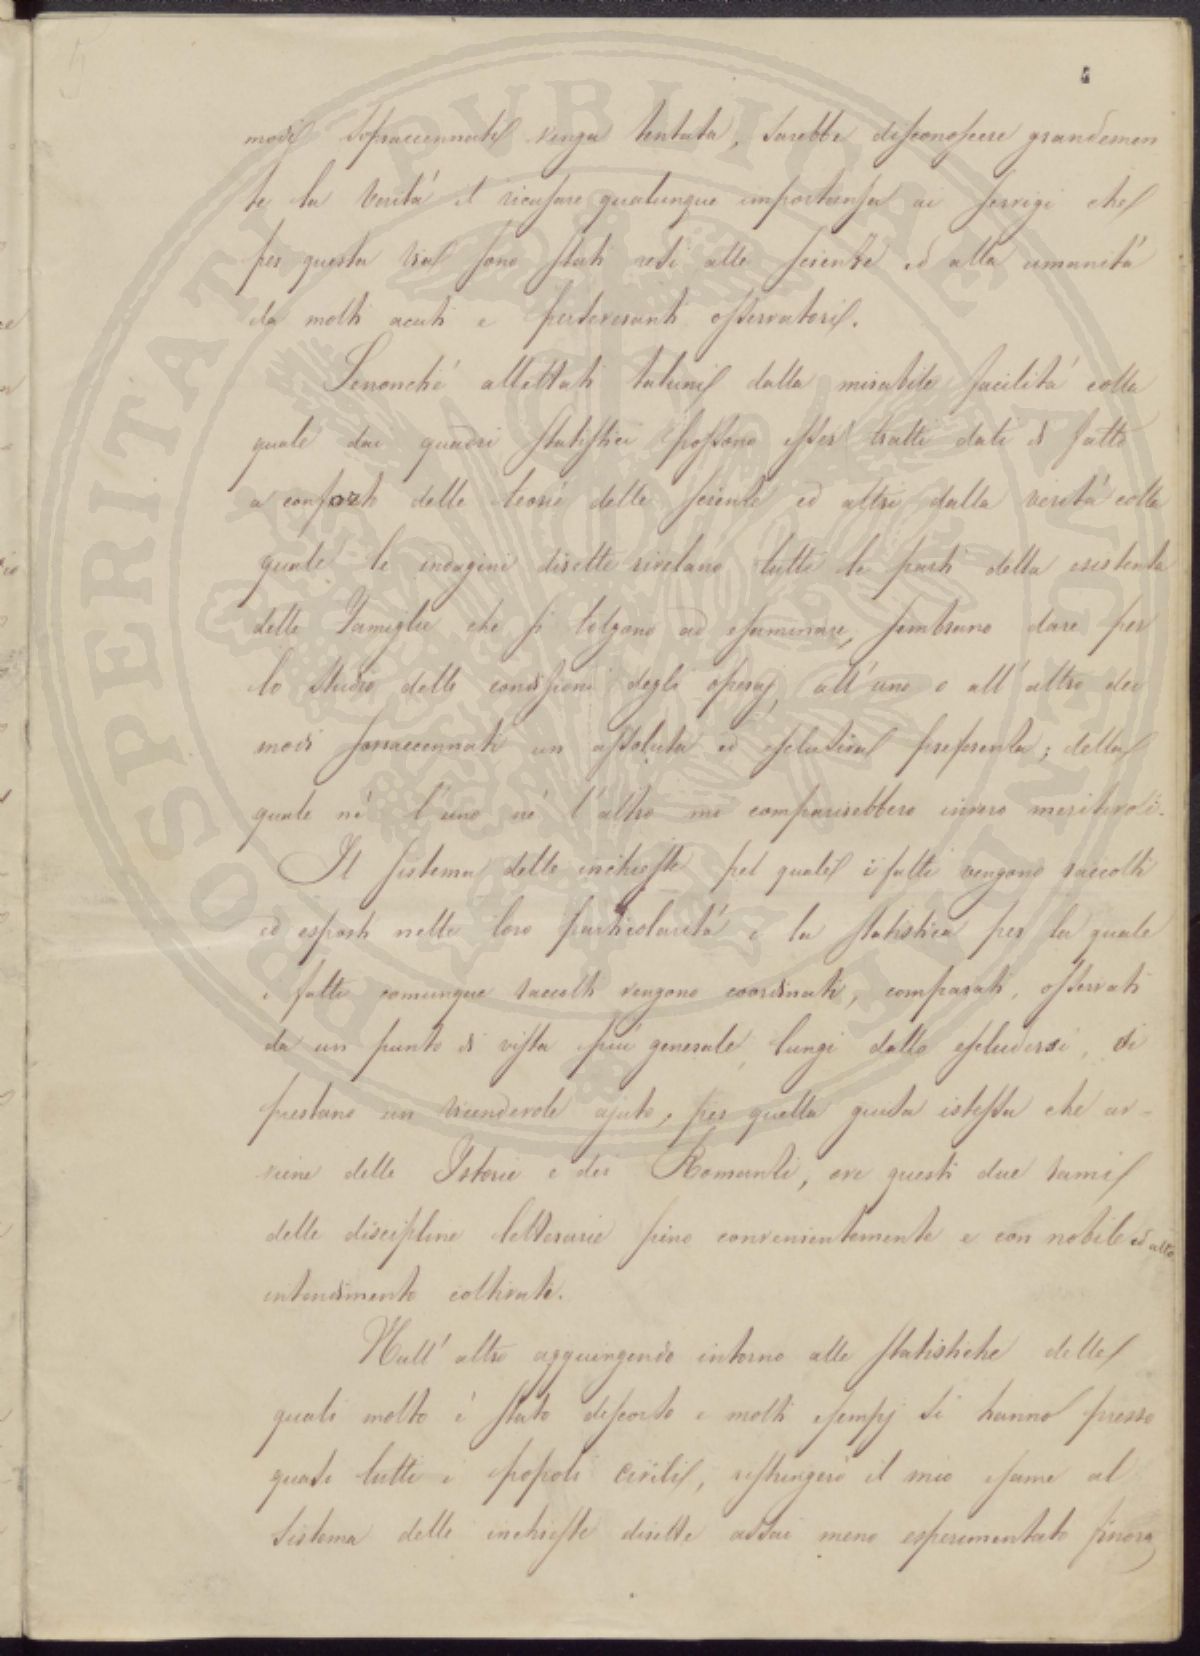 4
modi sopraccennati venga tentata, sarebbe disconoscere grandemen
te la Verità il ricusare qualunque importanza ai servigi che
per questa via sono stati resi alle scienze ed alla umanità
da molti acuti e perseveranti osservatori.
Senonché allettati taluni dalla mirabile facilità colla
quale dai quadri statistici possono esser tratti dati di fatto
a conforto delle teorie delle scienze ed altri dalla verità colla
quale le indagini dirette rivelano tutte le parti della esistenza
delle Famiglie che si tolgono ad esaminare, sembrano dare per
lo studio delle condizioni degli operaj, all'uno o all'altro dei
modi sovraccennati un assoluta ed esclusiva preferenza; della
quale nè l'uno nè l'altro me comparirebbero invero meritevoli.
Il sistema delle inchieste pel quale i fatti vengono raccolti
ed esposti nelle loro particolarità e la statistica per la quale
i fatti comunque raccolti vengono coordinati, comparati, osservati
da un punto di vista più generale, lungi dallo escludersi, si
prestano un vicendevole ajuto, per quella guisa istessa che av-
viene delle Istorie e dei Romanzi, ove questi due rami
delle discipline letterarie sieno convenientemente e con nobile ed alto
intendimento coltivate.
Null'altro aggiungendo intorno alle statistiche delle
quali molto è stato discorso e molti esempj si hanno presso
quasi tutti i popoli civili, restringerò il mio esame al
sistema delle inchieste dirette assai meno esperimentato finora
PROSPERITATI PVBLICAE AVGENDAE